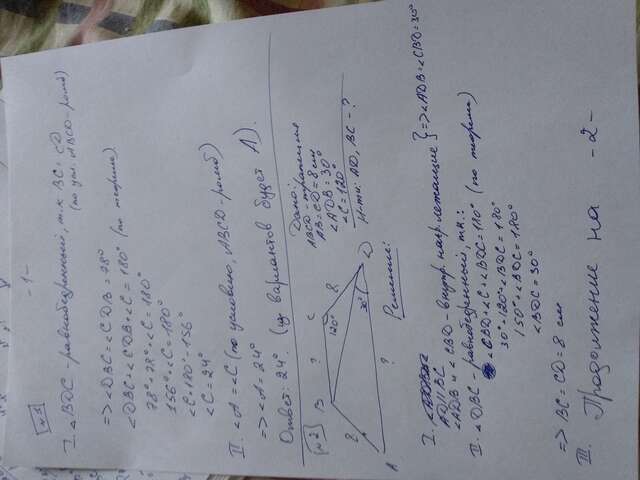 -1-
№1
I. ∠BDC - равнобедренный, т.к. BC = CD
(по усл. ABCD - ромб)
=> ∠DBC = ∠CDB = 78°
∠DBC + ∠CDB + ∠C = 180° (по теореме)
78° + 78° + ∠C = 180°
156° + ∠C = 180°
∠C = 180° - 156°
∠C = 24°
II. ∠A = ∠C (по условию, ABCD - ромб)
=> ∠A = 24°
Ответ: 24°. (из вариантов будет A).
№2
B ? C
120°
8 8
30° D
A ?
Дано:
ABCD - трапеция
AB = CD = 8 см
∠ADB = 30°
∠C = 120°
Н-ти: AD, BC - ?
Решение:
I.
AD || BC
∠ADB и ∠CBD - внутр. накр. лежащие } => ∠ADB = ∠CBD = 30°
II. ∠DBC - равнобедренный, т.к.:
∠CBD + ∠C + ∠BDC = 180° (по теореме)
30° + 120° + ∠BDC = 180°
150° + ∠BDC = 180°
∠BDC = 30°
=> BC = CD = 8 см
III. Продолжение на -2-